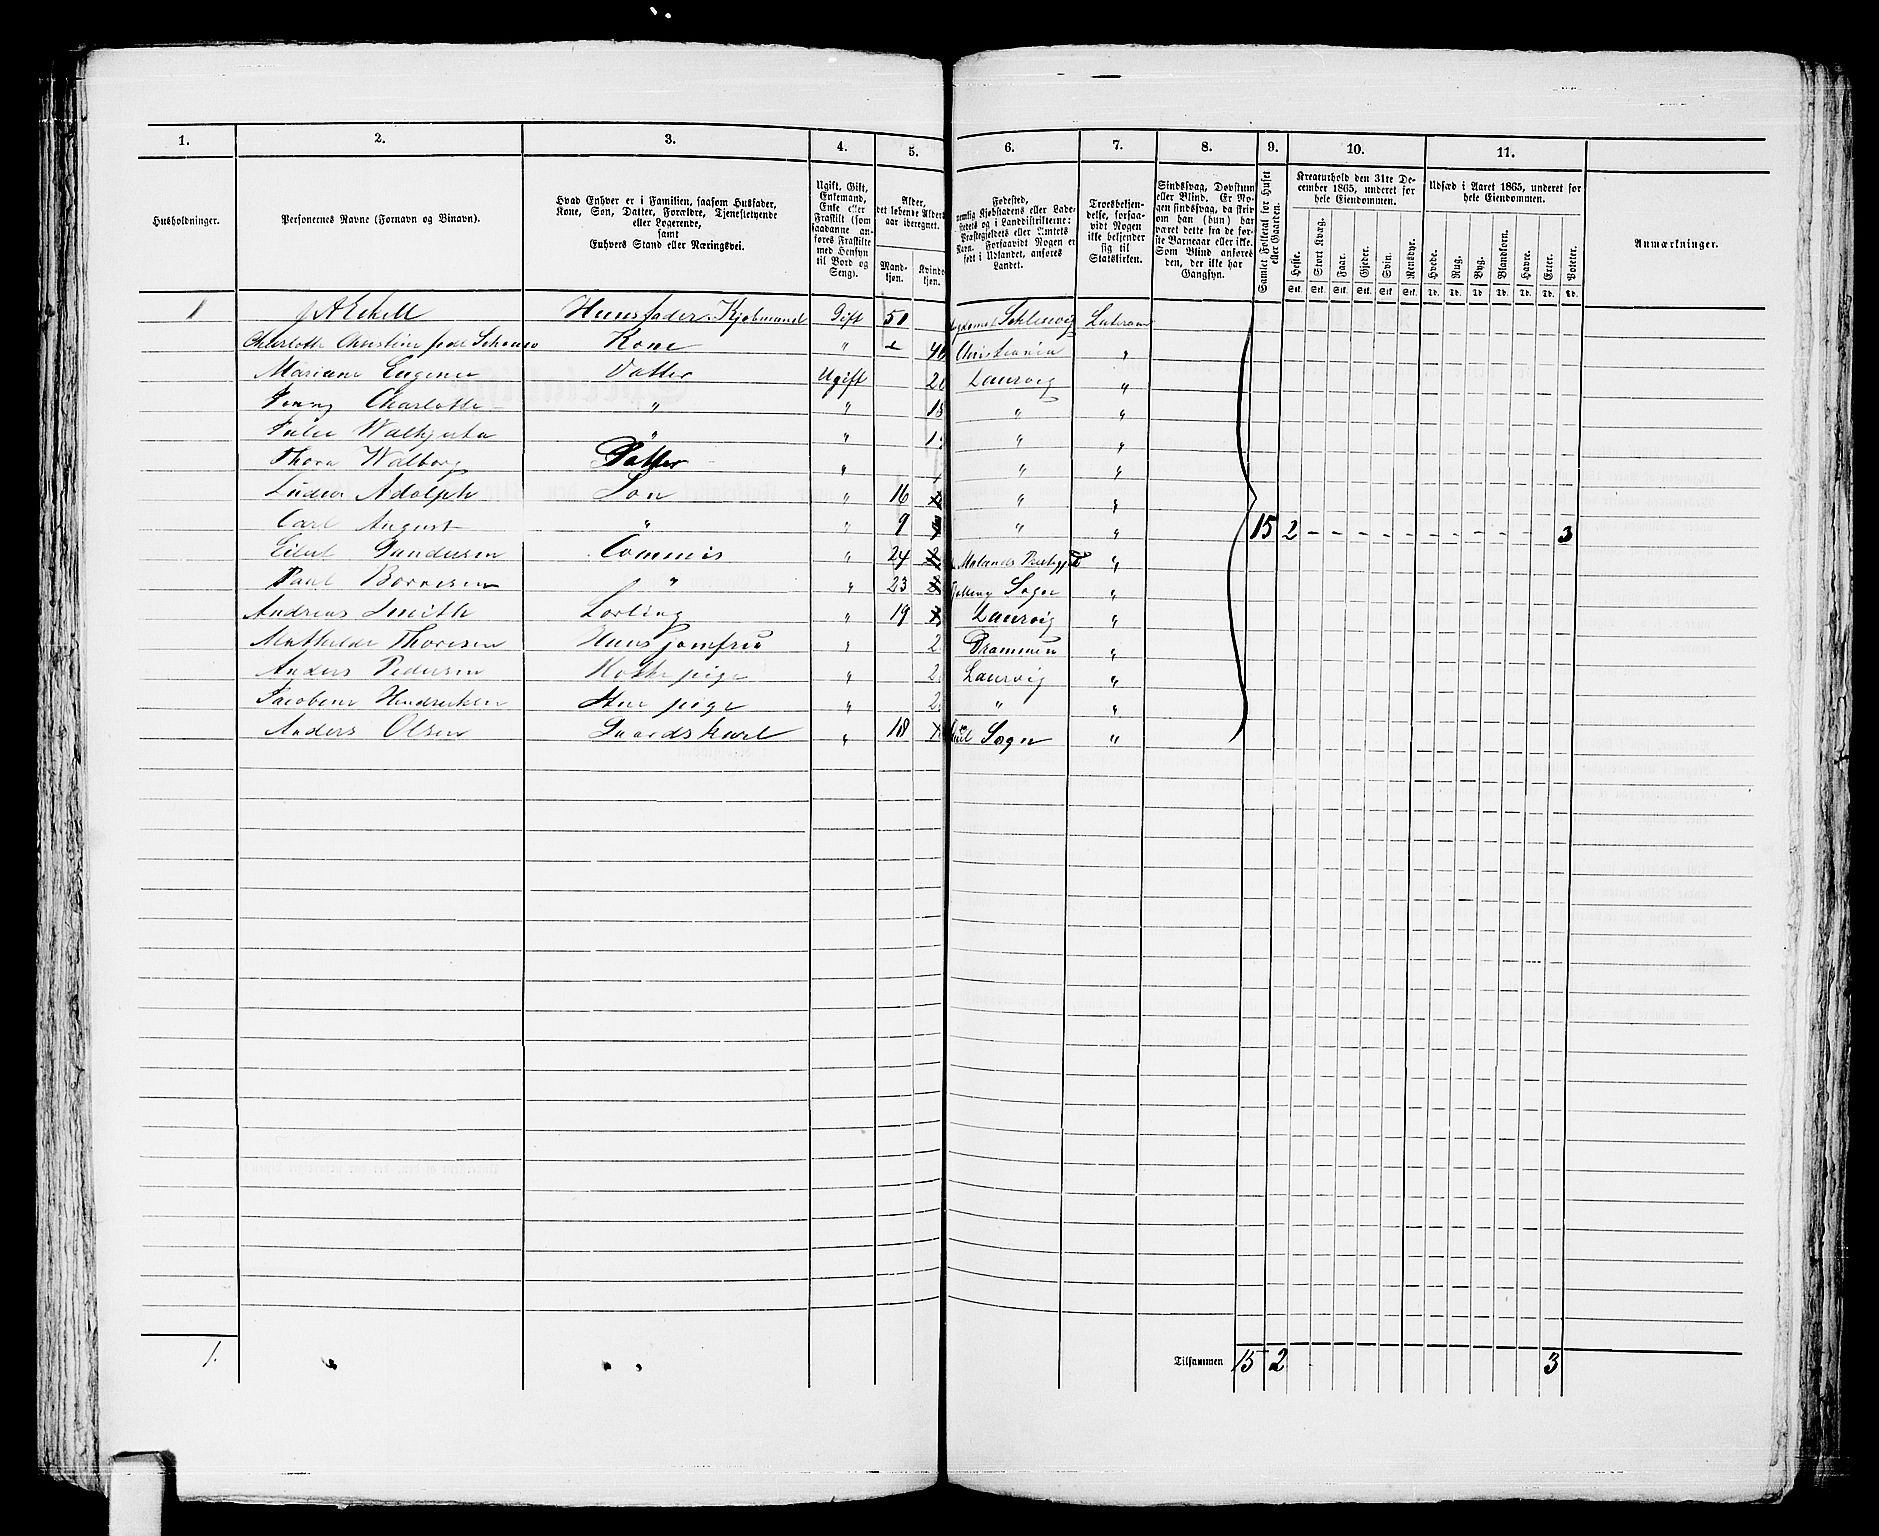 1. 2. 3. 4. 5. 6. 7. 8. 9. 10. 11.
Husholdninger.
Personernes Navne (Fornavn og Binavn).
Hvad Enhver er i Familien, saasom Husfader,
Kone, Søn, Datter, Forældre, Tjenestetyende
eller Logerende,
samt
Enhvers Stand eller Næringsvei.
Ugift, Gift,
Enkemand,
Enke eller
Fraskilt (som
saadanne an-
føres Fraskilte
med Hensyn
til Bord og
Seng).
Alder,
det løbende Alders-
aar iberegnet.
Mand-
kjøn.
Kvinde-
kjøn.
Fødested,
nemlig Kjøbstadens eller Lade-
stedets og i Landdistrikterne:
Præstegjeldets eller Amtets
Navn. Forsaavidt Nogen er
født i Udlandet, anføres
Landet.
Troesbekjen-
delse, forsaa-
vidt Nogen
ikke bekjender
sig til
Statskirken.
Sindssvag, Døvstum
eller Blind. Er No-
gen sindssvag, da skri-
ves om han (hun) har
været dette fra de før-
ste Barneaar eller ikke.
Som Blind anføres
den, der ikke har
Gangsyn.
Samlet Folketal for Huset
eller Gaarden.
Kreaturhold den 31te De-
cember 1865, underet for
hele Eiendommen.
Heste. Stort Kvæg. Faar. Gjeder. Svin. Rensdyr.
Stk. Stk. Stk. Stk. Stk. Stk.
Udsæd i Aaret 1865, underet for
hele Eiendommen.
Hvede. Rug. Byg. Blandkorn. Havre. Erter. Poteter.
Td. Td. Td. Td. Td. Td. Td.
Anmærkninger.
1 Huusfader. Kjøbmand Gift 51 Schleswig Luteraner
Charlotte Christine Kone " Christiania "
Mariane Eugenie Datter Ugift Laurvig "
Fanny Charlotte " " " "
Julie Walkjerta " " " "
Thora Walborg Datter " " "
Lüder Adolph Søn " 16 " "
Carl August " " 9 " " 15 2 - - - - - - - - - - - 3
Eilert Gundersen Commis " 24 "
Paul Borresen " " 23 Sogn "
Andreas Smith Lærling " 19 Laurvig "
Mathilde Thoresen Huusjomfru " Drammen "
Anders Pedersen Kokkepige " Laurvig "
Jacobine Hendriksen Stuepige " " "
Anders Olsen Gaardskarl " 18 Sogn "
1. " " " Tilsammen 15 2 3